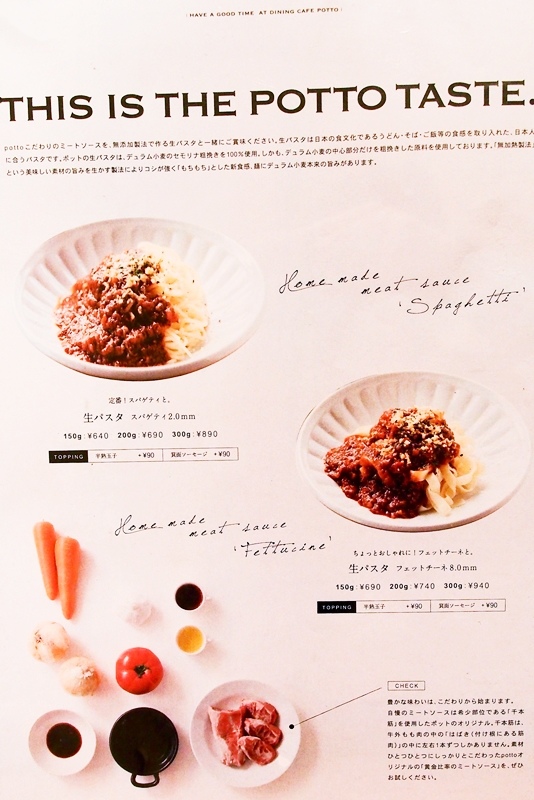 : HAVE A GOOD TIME AT DINING CAFE POTTO :
THIS IS THE POTTO TASTE.
pottoこだわりのミートソースを、無添加製法で作る生パスタと一緒にご賞味ください。生パスタは日本の食文化であるうどん・そば・ご飯等の食感を取り入れた、日本人
に合うパスタです。ポットの生パスタは、デュラム小麦のセモリナ粗挽きを100%使用。しかも、デュラム小麦の中心部分だけを粗挽きした原料を使用しております。「無加熱製法」
という美味しい素材の旨みを生かす製法によりコシが強く「もちもち」とした新食感、麺にデュラム小麦本来の旨みがあります。
Home made
meat sauce
'Spaghetti'
定番!スパゲティと。
生パスタ スパゲティ2.0mm
150g:¥640 200g:¥690 300g:¥890
TOPPING 半熟玉子 +¥90 箕面ソーセージ +¥90
Home made
meat sauce
'Fettucine'
ちょっとおしゃれに!フェットチーネと。
生パスタ フェットチーネ8.0mm
150g:¥690 200g:¥740 300g:¥940
TOPPING 半熟玉子 +¥90 箕面ソーセージ +¥90
CHECK
豊かな味わいは、こだわりから始まります。
自慢のミートソースは希少部位である「千本
筋」を使用したポットのオリジナル。千本筋は、
牛外もも肉の中の「はばき(付け根にある筋
肉)」の中に左右1本ずつしかありません。素材
ひとつひとつにしっかりとこだわったpottoオ
リジナルの「黄金比率のミートソース」を、ぜひ
お試しください。